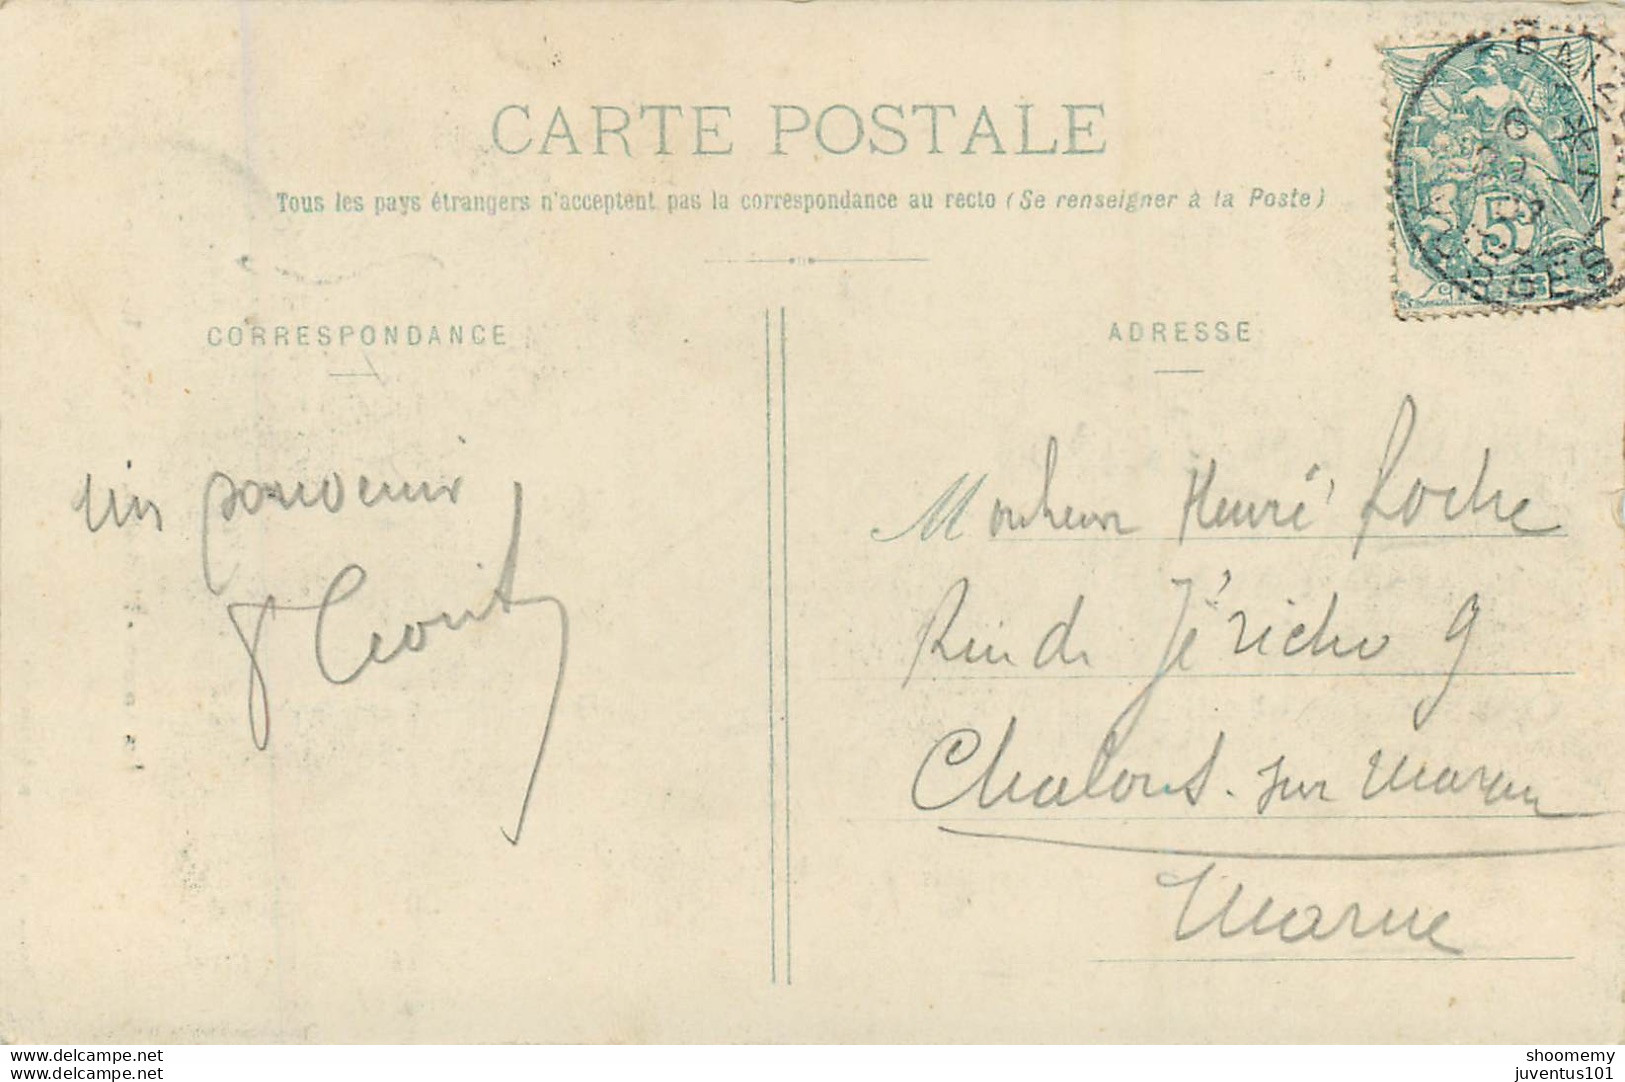 CARTE POSTALE
Tous les pays étrangers n'acceptent pas la correspondance au recto (Se renseigner à la Poste)
CORRESPONDANCE
ADRESSE
un souvenir
Monsieur Henri Roche
Rue de Jéricho 9
Chalons. sur Marne
Marne
6
5
www.delcampe.net
www.delcampe.net
shoomemy
juventus101